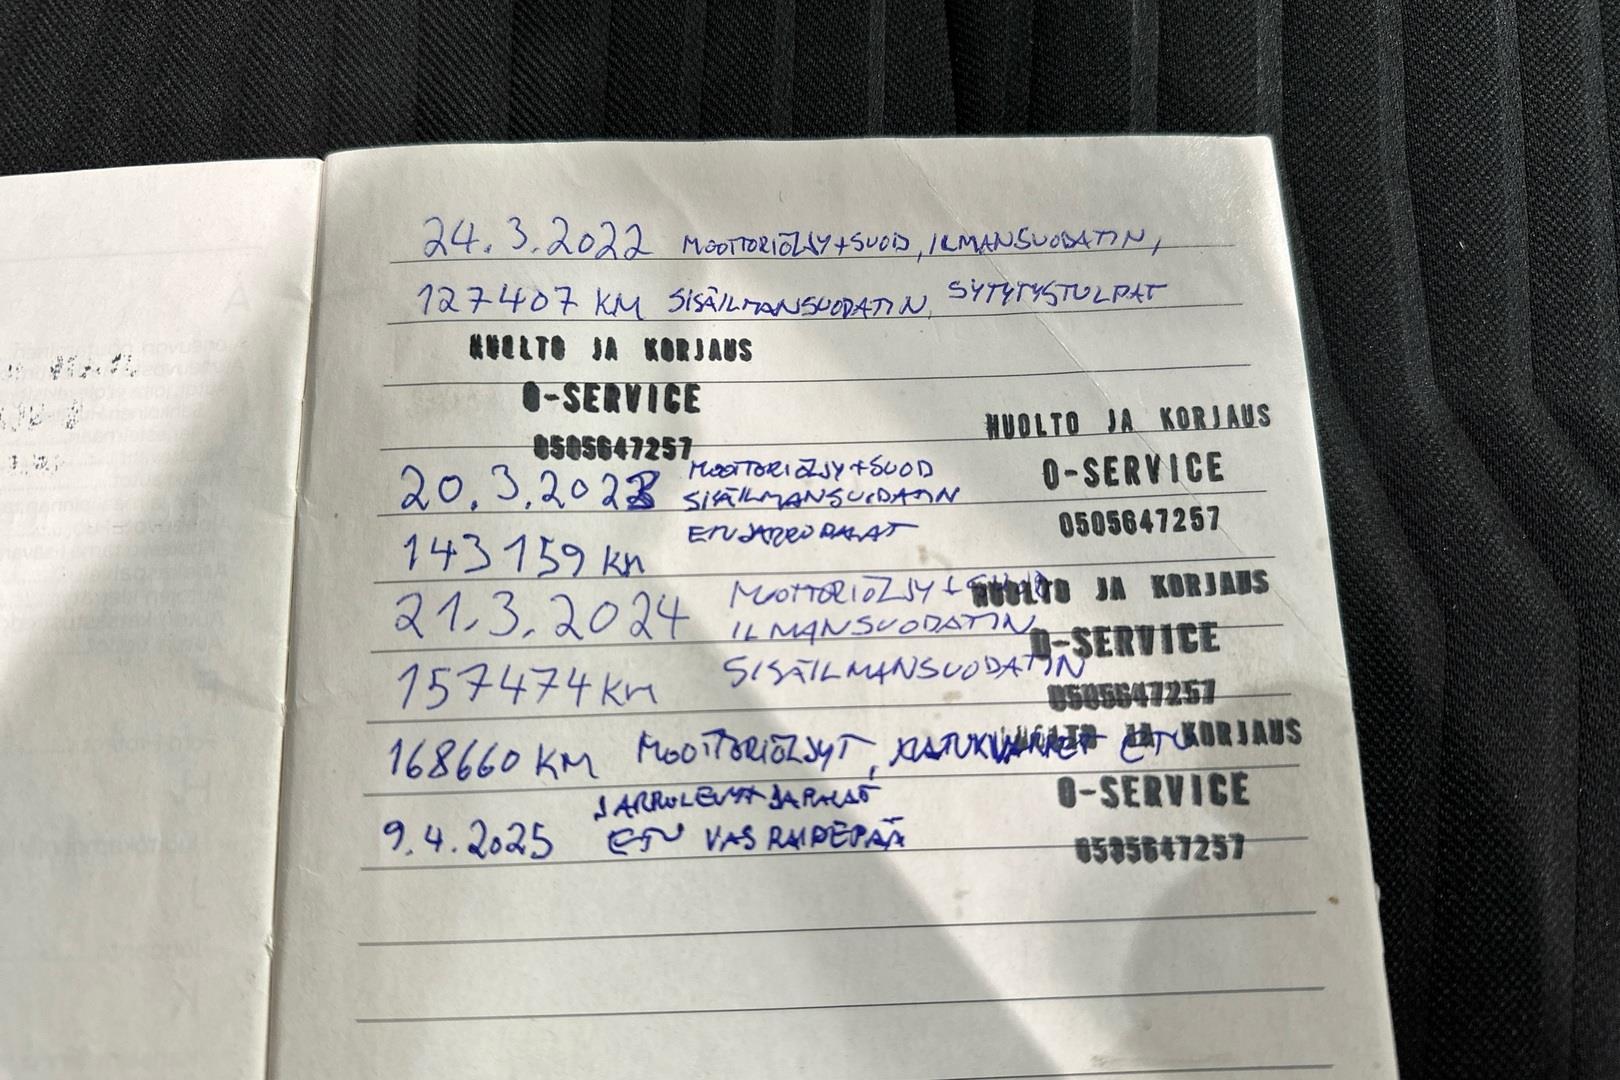 24.3.2022 MOOTTORIÖLJY+SUOD, ILMANSUODATIN,
127407 KM SISÄILMANSUODATIN, SYTYTYSTULPAT
HUOLTO JA KORJAUS
O-SERVICE
0505647257
HUOLTO JA KORJAUS
O-SERVICE
0505647257
20.3.2023 MOOTTORIÖLJY+SUOD
SISÄILMANSUODATIN
143159 KM ETUJARRUPALAT
21.3.2024 MOOTTORIÖLJY+SUOD
ILMANSUODATIN
157474 KM SISÄILMANSUODATIN
HUOLTO JA KORJAUS
O-SERVICE
0505647257
168660 KM MOOTTORIÖLJYT, ETU
JARRULEVYT JA PALAT
9.4.2025 ETU VAS RAIDEPÄÄ
HUOLTO JA KORJAUS
O-SERVICE
0505647257